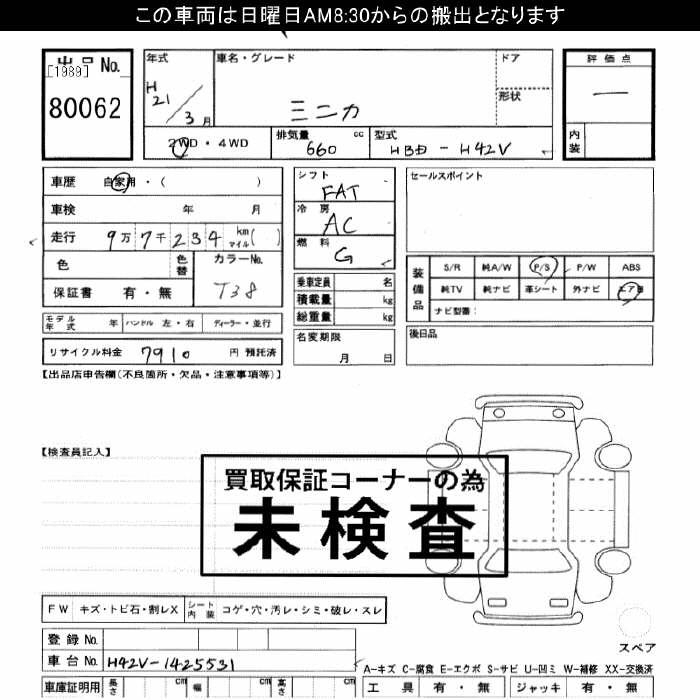 この車両は日曜日AM8:30からの搬出となります
出品 No.
[1989]
80062
年式
H
21
3 月
車名・グレード
ミニカ
ドア
形状
2WD・4WD
排気量 660 cc
型式 HBD-H42V
評価点
一
内装
車歴 自家用・( )
車検 年 月
走行 9万7千234 km マイル( )
色
色替
カラーNo.
T38
保証書 有・無
モデル年式 年 ハンドル 左・右 ディーラー・並行
リサイクル料金 7910 円 預託済
シフト
FAT
冷房
AC
燃料
G
乗車定員 名
積載量 kg
総重量 kg
名変期限
月 日
セールスポイント
装備品
S/R 純A/W P/S P/W ABS
純TV 純ナビ 革シート 外ナビ エア B
ナビ型番:
後日品
【出品店申告欄(不良箇所・欠品・注意事項等)】
【検査員記入】
買取保証コーナーの為
未検査
FW キズ・トビ石・割レX シート内装 コゲ・穴・汚レ・シミ・破レ・スレ
登録 No.
車台 No. H42V-1425531
車庫証明用 長さ cm 幅 cm 高さ cm
スペア
A-キズ C-腐食 E-エクボ S-サビ U-凹ミ W-補修 XX-交換済
工具 有・無 ジャッキ 有・無